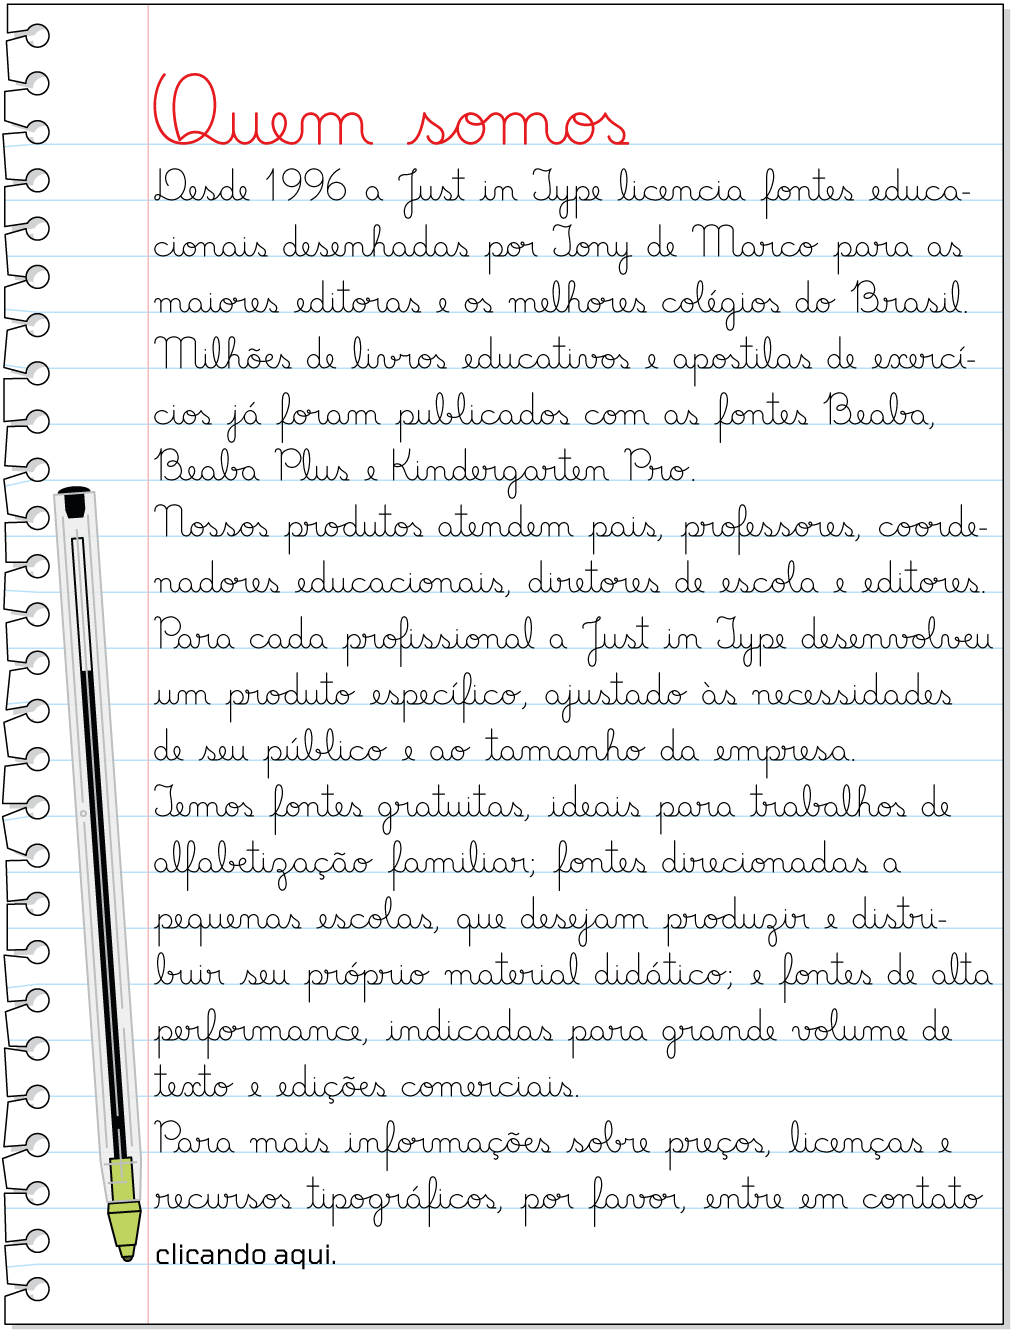 Quem somos
Desde 1996 a Just in Type licencia fontes educa-
cionais desenhadas por Tony de Marco para as
maiores editoras e os melhores colégios do Brasil.
Milhões de livros educativos e apostilas de exercí-
cios já foram publicados com as fontes Beaba,
Beaba Plus e Kindergarten Pro.
Nossos produtos atendem pais, professores, coorde-
nadores educacionais, diretores de escola e editores.
Para cada profissional a Just in Type desenvolveu
um produto específico, ajustado às necessidades
de seu público e ao tamanho da empresa.
Temos fontes gratuitas, ideais para trabalhos de
alfabetização familiar; fontes direcionadas a
pequenas escolas, que desejam produzir e distri-
buir seu próprio material didático; e fontes de alta
performance, indicadas para grande volume de
texto e edições comerciais.
Para mais informações sobre preços, licenças e
recursos tipográficos, por favor, entre em contato
clicando aqui.